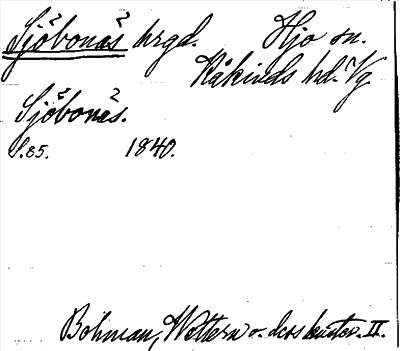 Sjöbonäs hrgd. Hjo sn.
Kåkinds hd. Vg
Sjöbonäs.
S. 85. 1840.
Bohman, Wettern o. dess kuster. II.